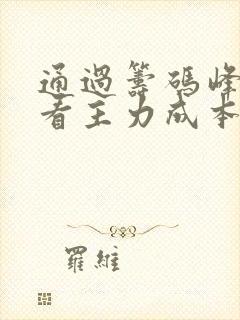 通過籌碼峰
看主力成本
羅維